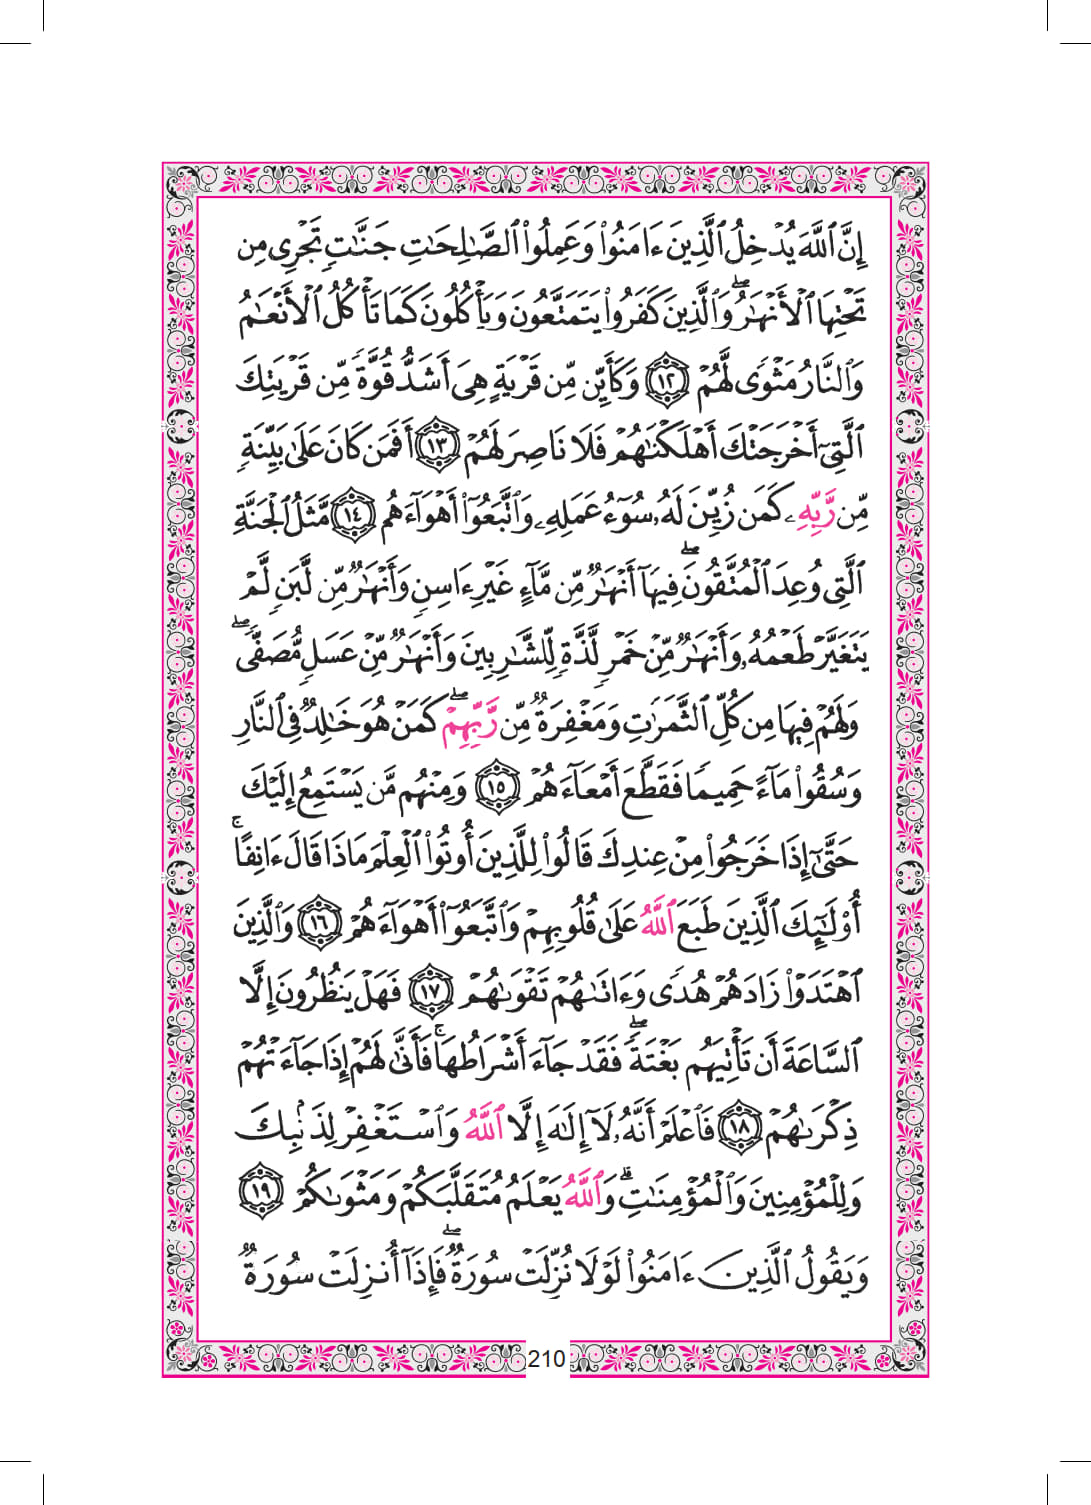 إِنَّ ٱللَّهَ يُدْخِلُ ٱلَّذِينَ ءَامَنُوا۟ وَعَمِلُوا۟ ٱلصَّٰلِحَٰتِ جَنَّٰتٍ تَجْرِى مِن
تَحْتِهَا ٱلْأَنْهَٰرُ ۖ وَٱلَّذِينَ كَفَرُوا۟ يَتَمَتَّعُونَ وَيَأْكُلُونَ كَمَا تَأْكُلُ ٱلْأَنْعَٰمُ
وَٱلنَّارُ مَثْوًى لَّهُمْ ١٢ وَكَأَيِّن مِّن قَرْيَةٍ هِىَ أَشَدُّ قُوَّةً مِّن قَرْيَتِكَ
ٱلَّتِىٓ أَخْرَجَتْكَ أَهْلَكْنَٰهُمْ فَلَا نَاصِرَ لَهُمْ ١٣ أَفَمَن كَانَ عَلَىٰ بَيِّنَةٍ
مِّن رَّبِّهِۦ كَمَن زُيِّنَ لَهُۥ سُوٓءُ عَمَلِهِۦ وَٱتَّبَعُوٓا۟ أَهْوَآءَهُم ١٤ مَّثَلُ ٱلْجَنَّةِ
ٱلَّتِى وُعِدَ ٱلْمُتَّقُونَ ۖ فِيهَآ أَنْهَٰرٌ مِّن مَّآءٍ غَيْرِ ءَاسِنٍ وَأَنْهَٰرٌ مِّن لَّبَنٍ لَّمْ
يَتَغَيَّرْ طَعْمُهُۥ وَأَنْهَٰرٌ مِّنْ خَمْرٍ لَّذَّةٍ لِّلشَّٰرِبِينَ وَأَنْهَٰرٌ مِّنْ عَسَلٍ مُّصَفًّى ۖ
وَلَهُمْ فِيهَا مِن كُلِّ ٱلثَّمَرَٰتِ وَمَغْفِرَةٌ مِّن رَّبِّهِمْ ۖ كَمَنْ هُوَ خَٰلِدٌ فِى ٱلنَّارِ
وَسُقُوا۟ مَآءً حَمِيمًا فَقَطَّعَ أَمْعَآءَهُمْ ١٥ وَمِنْهُم مَّن يَسْتَمِعُ إِلَيْكَ
حَتَّىٰٓ إِذَا خَرَجُوا۟ مِنْ عِندِكَ قَالُوا۟ لِلَّذِينَ أُوتُوا۟ ٱلْعِلْمَ مَاذَا قَالَ ءَانِفًا ۚ
أُو۟لَٰٓئِكَ ٱلَّذِينَ طَبَعَ ٱللَّهُ عَلَىٰ قُلُوبِهِمْ وَٱتَّبَعُوٓا۟ أَهْوَآءَهُمْ ١٦ وَٱلَّذِينَ
ٱهْتَدَوْا۟ زَادَهُمْ هُدًى وَءَاتَىٰهُمْ تَقْوَىٰهُمْ ١٧ فَهَلْ يَنظُرُونَ إِلَّا
ٱلسَّاعَةَ أَن تَأْتِيَهُم بَغْتَةً ۖ فَقَدْ جَآءَ أَشْرَاطُهَا ۚ فَأَنَّىٰ لَهُمْ إِذَا جَآءَتْهُمْ
ذِكْرَىٰهُمْ ١٨ فَٱعْلَمْ أَنَّهُۥ لَآ إِلَٰهَ إِلَّا ٱللَّهُ وَٱسْتَغْفِرْ لِذَنۢبِكَ
وَلِلْمُؤْمِنِينَ وَٱلْمُؤْمِنَٰتِ ۗ وَٱللَّهُ يَعْلَمُ مُتَقَلَّبَكُمْ وَمَثْوَىٰكُمْ ١٩
وَيَقُولُ ٱلَّذِينَ ءَامَنُوا۟ لَوْلَا نُزِّلَتْ سُورَةٌ ۖ فَإِذَآ أُنزِلَتْ سُورَةٌ
210